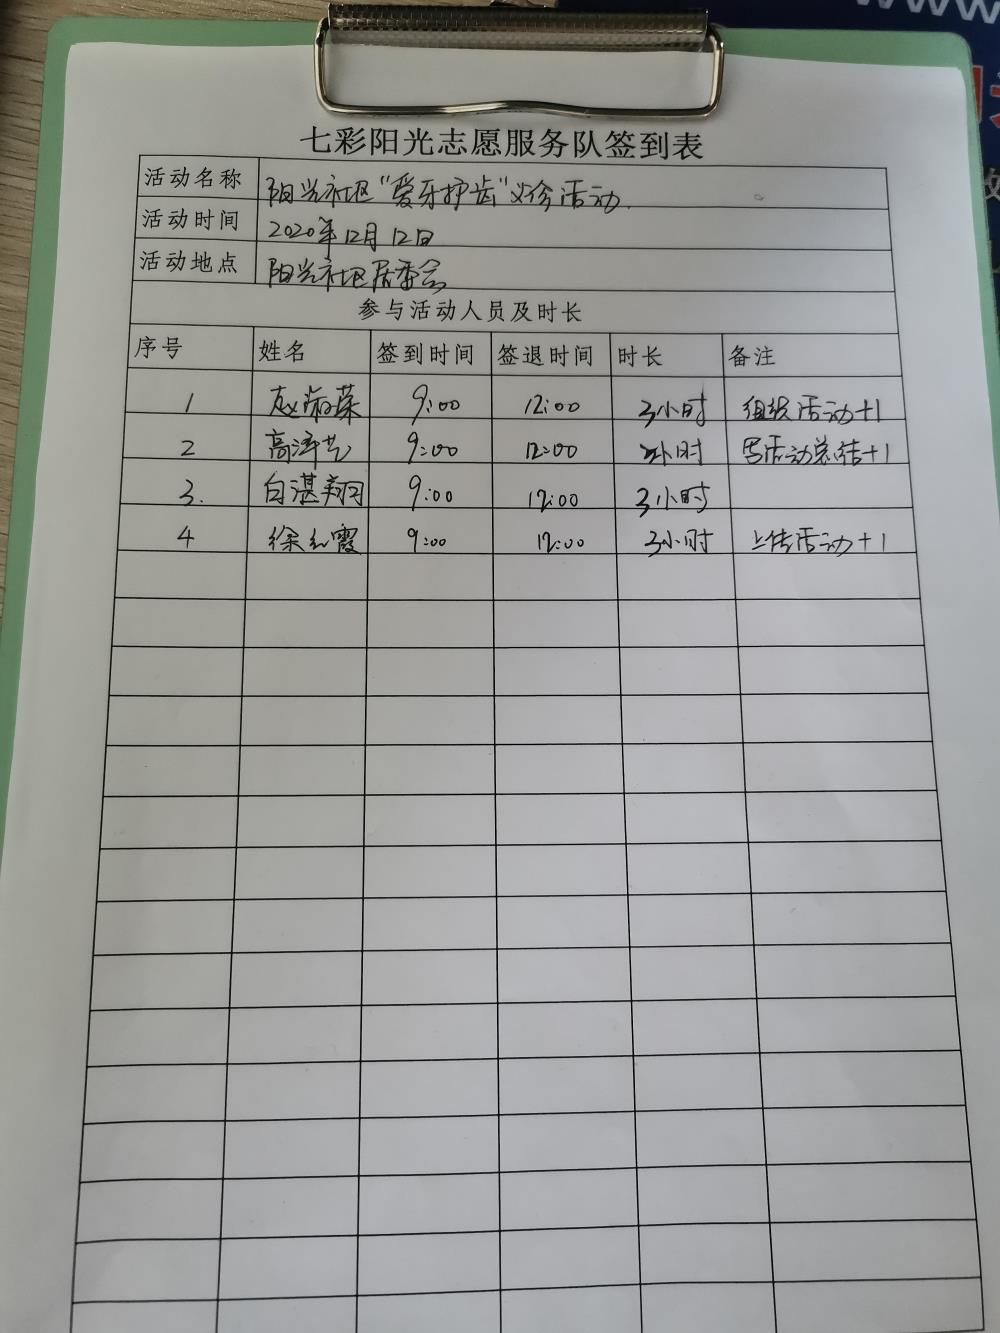 WWW
七彩阳光志愿服务队签到表
活动名称 阳光社区“爱牙护齿”义诊活动.
活动时间 2020年12月12日
活动地点 阳光社区居委会
参与活动人员及时长
序号 姓名 签到时间 签退时间 时长 备注
1 赵淑荣 9:00 12:00 3小时 组织活动+1
2 高泽艺 9:00 12:00 小时 写活动总结+1
3. 白湛翔 9:00 12:00 3小时
4 徐红霞 9:00 12:00 3小时 上传活动+1